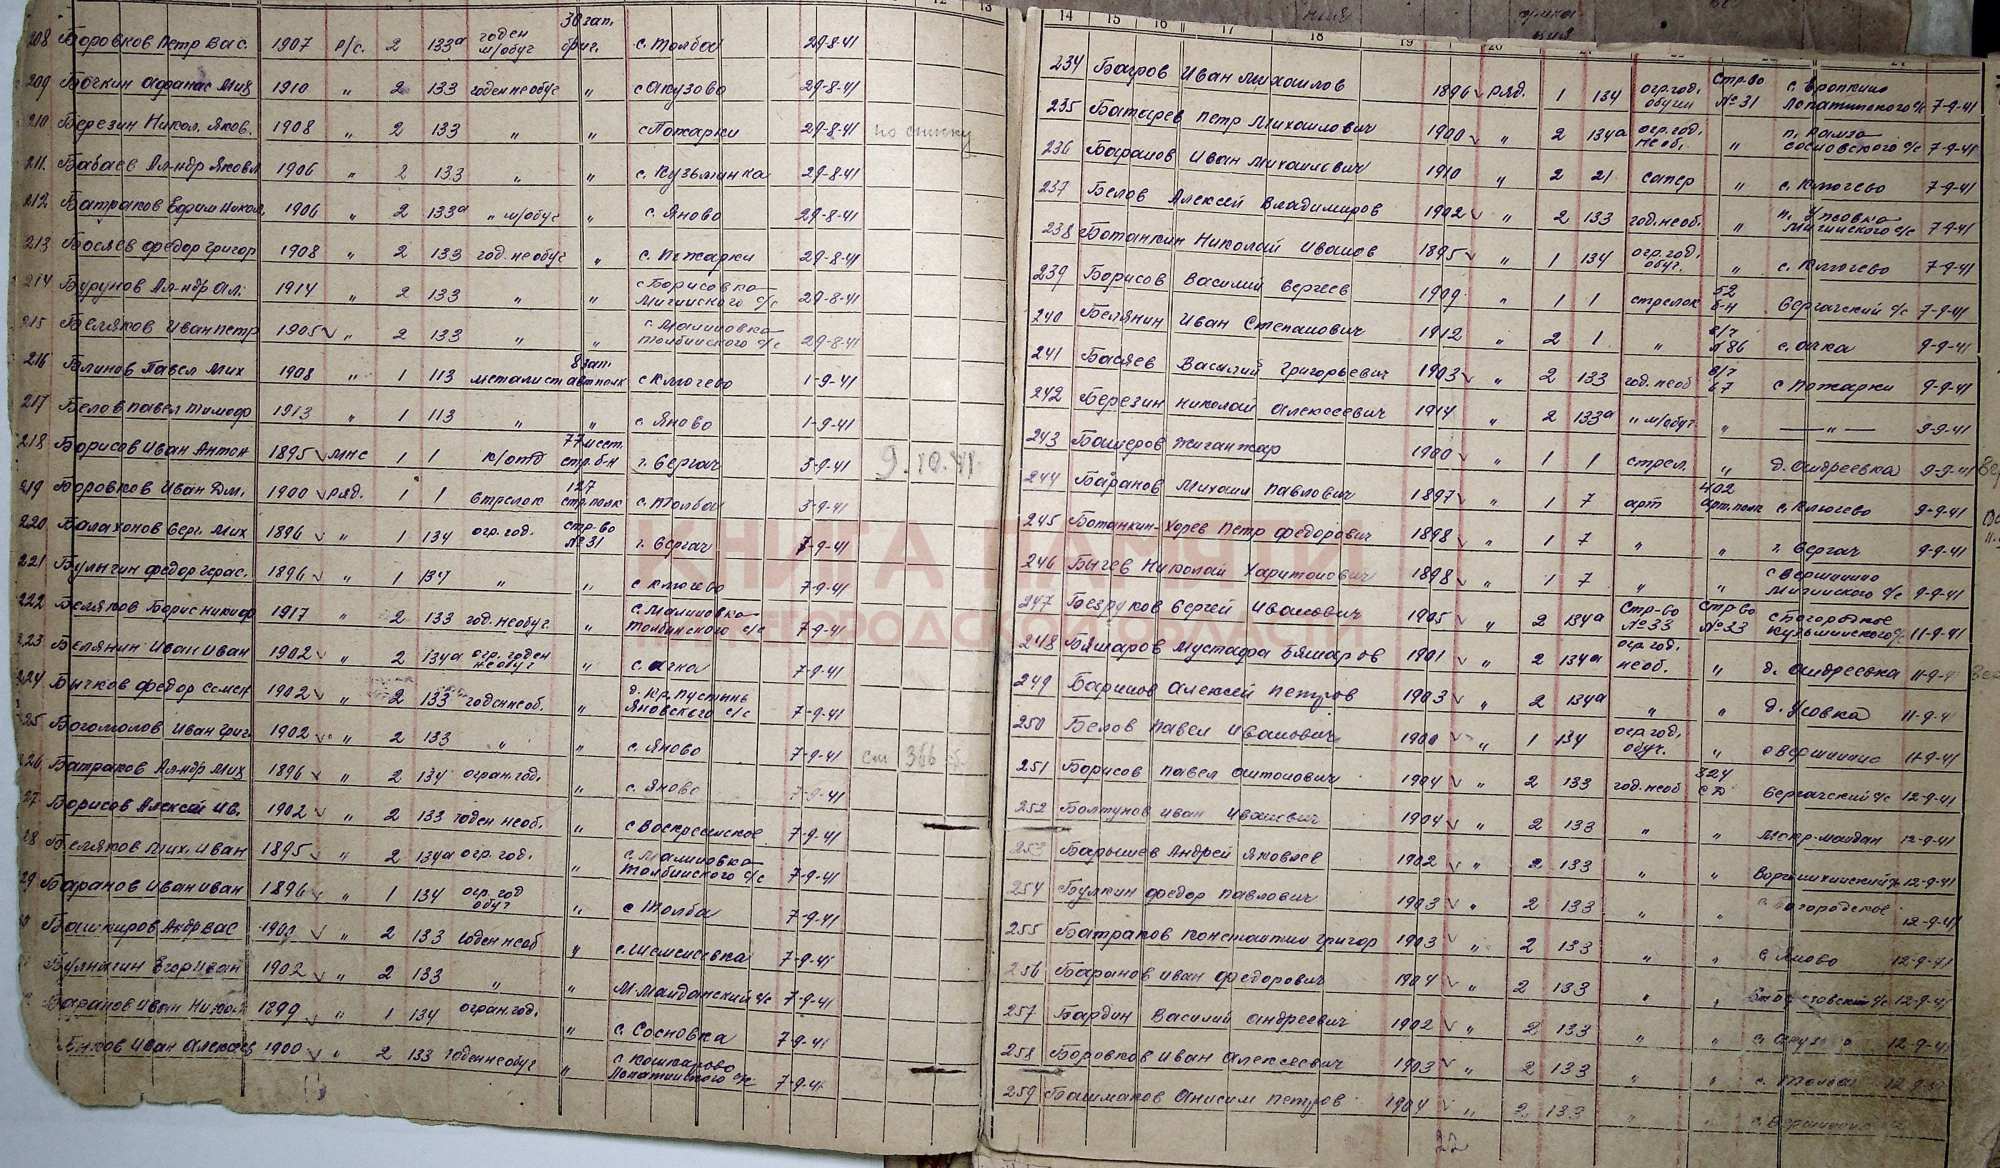 208 Боровков Петр Вас. 1907 р/с. 2 133а годен м/обуч 30 зап. бриг. с. Толба 29-8-41
209 Бочкин Афанас Мих 1910 " 2 133 годен необуч " с Акузово 29-8-41
210 Березин Никол. Яков. 1908 " 2 133 " " с Пожарки 29-8-41 по списку
211. Бабаев Ал-ндр Яковл 1906 " 2 133 " " с. Кузьминка 29-8-41
212 Батраков Ефим Никол. 1906 " 2 133а " м/обуч " с. Яново 29-8-41
213 Босяев Федор Григор 1908 " 2 133 год. необуч " с. Пожарки 29-8-41
214 Бурунов Ал-ндр Ал. 1914 " 2 133 " " с Борисовка Мигинского с/с 29-8-41
215 Беляков Иван Петр 1905 " 2 133 " " с. Малиновка Толбинского с/с 29-8-41
216 Блинов Павел Мих 1908 " 1 113 металист 8 зап. автополк с Ключево 1-9-41
217 Белов Павел Тимоф 1913 " 1 113 " " с. Яново 1-9-41
218 Борисов Иван Антон 1895 мнс 1 1 к/отд 77 мест. стр. б-н г. Сергач 3-9-41 9.10.41
219 Боровков Иван Дм. 1900 ряд. 1 1 стрелок 127 стр. полк с. Толба 3-9-41
220 Балахонов Серг. Мих 1896 " 1 134 огр. год. стр-во №31 г. Сергач 7-9-41
221 Булыгин Федор Герас. 1896 " 1 134 " " с Ключево 7-9-41
222 Беляков Борис Никиф 1917 " 2 133 год. необуч. " с. Малиновка Толбинского с/с 7-9-41
223 Белянин Иван Иван 1902 " 2 134а огр. годен необуч " с. Ачка 7-9-41
224 Бычков Федор Семен 1902 " 2 133 годен необ. " д. Кр. Пустынь Яновского с/с 7-9-41
225 Богомолов Иван Григ 1902 " 2 133 " " с. Яново 7-9-41 см 366
226 Батраков Ал-ндр Мих 1896 " 2 134 огран. год. " с. Яново 7-9-41
27 Борисов Алексей Ив. 1902 " 2 133 годен необ. " с Воскресенское 7-9-41
28 Беляков Мих. Иван 1895 " 2 134а огр. год. " с. Малиновка Толбинского с/с 7-9-41
29 Баранов Иван Иван 1896 " 1 134 огр. год обуч " с Толба 7-9-41
Башкиров Андр Вас " 2 133 годен необ " 7-9-41
Булыгин Егор Иван 1902 " 2 133 " " М-Майданский с/с 7-9-41
Баранов Иван Никол 1899 " 1 134 огран. год. " с. Сосновка 7-9-41
Иван Алексеев 1900 " 2 133 годен необуч " с. Кошкарово Лопатинского с/с 7-9-41
14 15 16 17 18 19 20
234 Бауров Иван Михайлов 1896 ряд. 1 134 огр. год. обучен Стр-во №31 Лопатинского с/с 7-9-41
235 Батырев Петр Михайлович 1900 " 2 134а огр. год. необ. " п. Рамза Сосновского с/с 7-9-41
236 Баранов Иван Михайлович 1910 " 2 21 сапер " с. Ключево 7-9-41
237 Белов Алексей Владимиров 1902 " 2 133 год. необ. " Мигинского с/с 7-9-41
238 Ботанкин Николай Иванов 1895 " 1 134 огр. год. обуч. " с. Ключево 7-9-41
239 Борисов Василий Сергеев 1909 " 1 1 стрелок 52 б-н Сергачский с/с 7-9-41
240 Белянин Иван Степанович 1912 " 2 1 " 86 с. Ачка 9-9-41
241 Басяев Василий Григорьевич 1903 " 2 133 год. необ 67 с Пожарки 9-9-41
242 Березин Николай Алексеевич 1914 " 2 133а " м/обуч " — " — 9-9-41
243 Башеров Жиганжар 1900 " 1 1 стрел. " д. Андреевка 9-9-41
244 Баранов Михаил Павлович 1897 " 1 7 арт 402 арт. полк с. Ключево 9-9-41
245 Ботанкин-Хорев Петр Федорович 1898 " 1 7 " " г. Сергач 9-9-41
246 Бычев Николай Харитонович 1898 " 1 7 " " с Вершинино Мигинского с/с 9-9-41
247 Безруков Сергей Иванович 1905 " 2 134а Стр-во №33 стр-во №33 с Богородское Кузьминского с/с 11-9-41
248 Бяшаров Мустафа Бяшаров 1901 " 2 134а огр. год. необ. " д. Андреевка 11-9-41
249 Баринов Алексей Петров 1903 " 2 134а " " д. Усовка 11-9-41
250 Белов Павел Иванович 1900 " 1 134 огр. год. обуч. " с Вершинино 11-9-41
251 Борисов Павел Антонович 1904 " 2 133 год. необ 324 сд Сергачский с/с 12-9-41
252 Болтунов Иван Иванович 1904 " 2 133 " " Мокр-Майдан 12-9-41
253 Барышев Андрей Яковлев 1902 " 2 133 " " 12-9-41
254 Булкин Федор Павлович 1903 " 2 133 " " с. Богородское 12-9-41
255 Батраков Константин Григор 1903 " 2 133 " " с. Яново 12-9-41
256 Баранов Иван Федорович 1904 " 2 133 " " 12-9-41
257 Бардин Василий Андреевич 1902 " 2 133 " " 12-9-41
258 Боровков Иван Алексеевич 1903 " 2 133 " " с. Толба 12-9-41
259 Башмаков Анисим Петров 1904 " 2 133 " "
КНИГА ПАМЯТИ
НИЖЕГОРОДСКОЙ ОБЛАСТИ